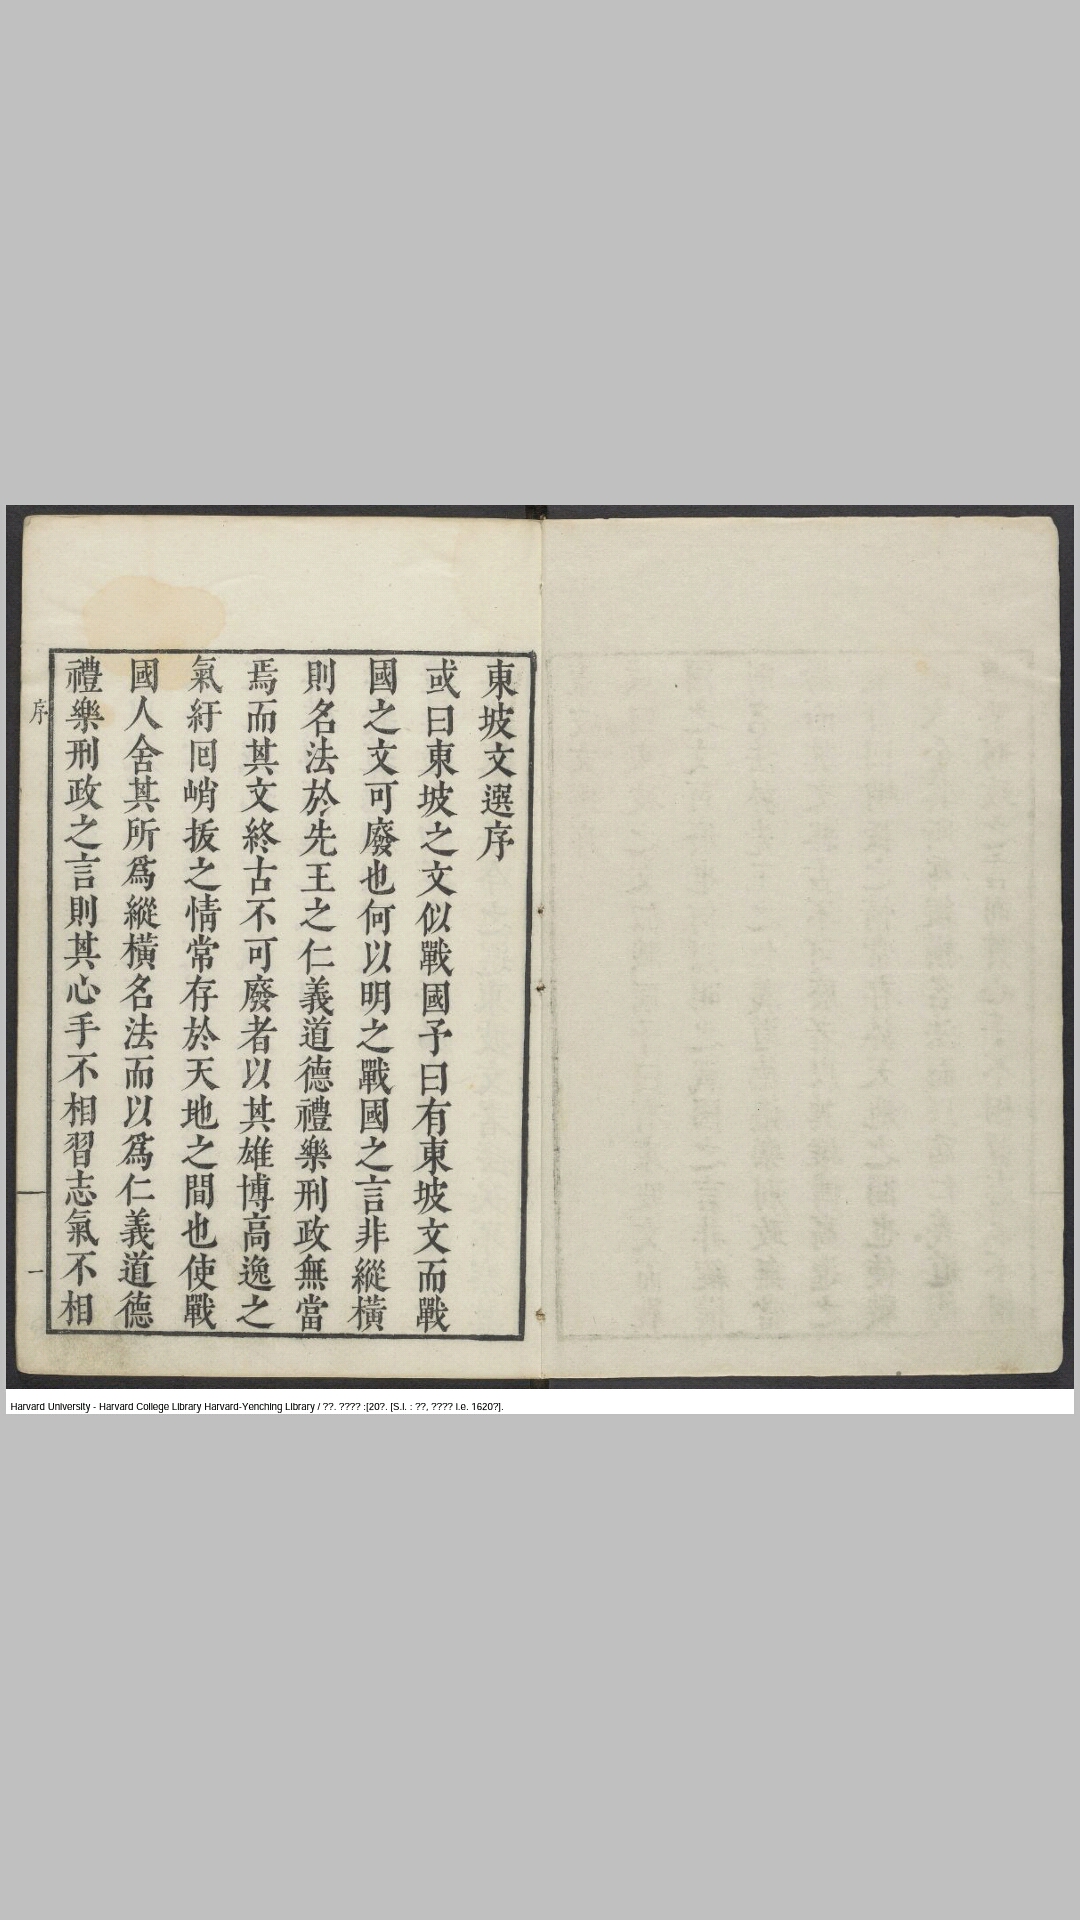 東坡文選序
或曰東坡之文似戰國予曰有東坡文而戰
國之文可廢也何以明之戰國之言非縱橫
則名法於先王之仁義道德禮樂刑政無當
焉而其文終古不可廢者以其雄博高逸之
氣紆回峭拔之情常存於天地之間也使戰
國人舍其所爲縱橫名法而以爲仁義道德
禮樂刑政之言則其心手不相習志氣不相
序
一
Harvard University - Harvard College Library Harvard-Yenching Library / ??. ???? :[20?. [S.l. : ??, ???? i.e. 1620?].